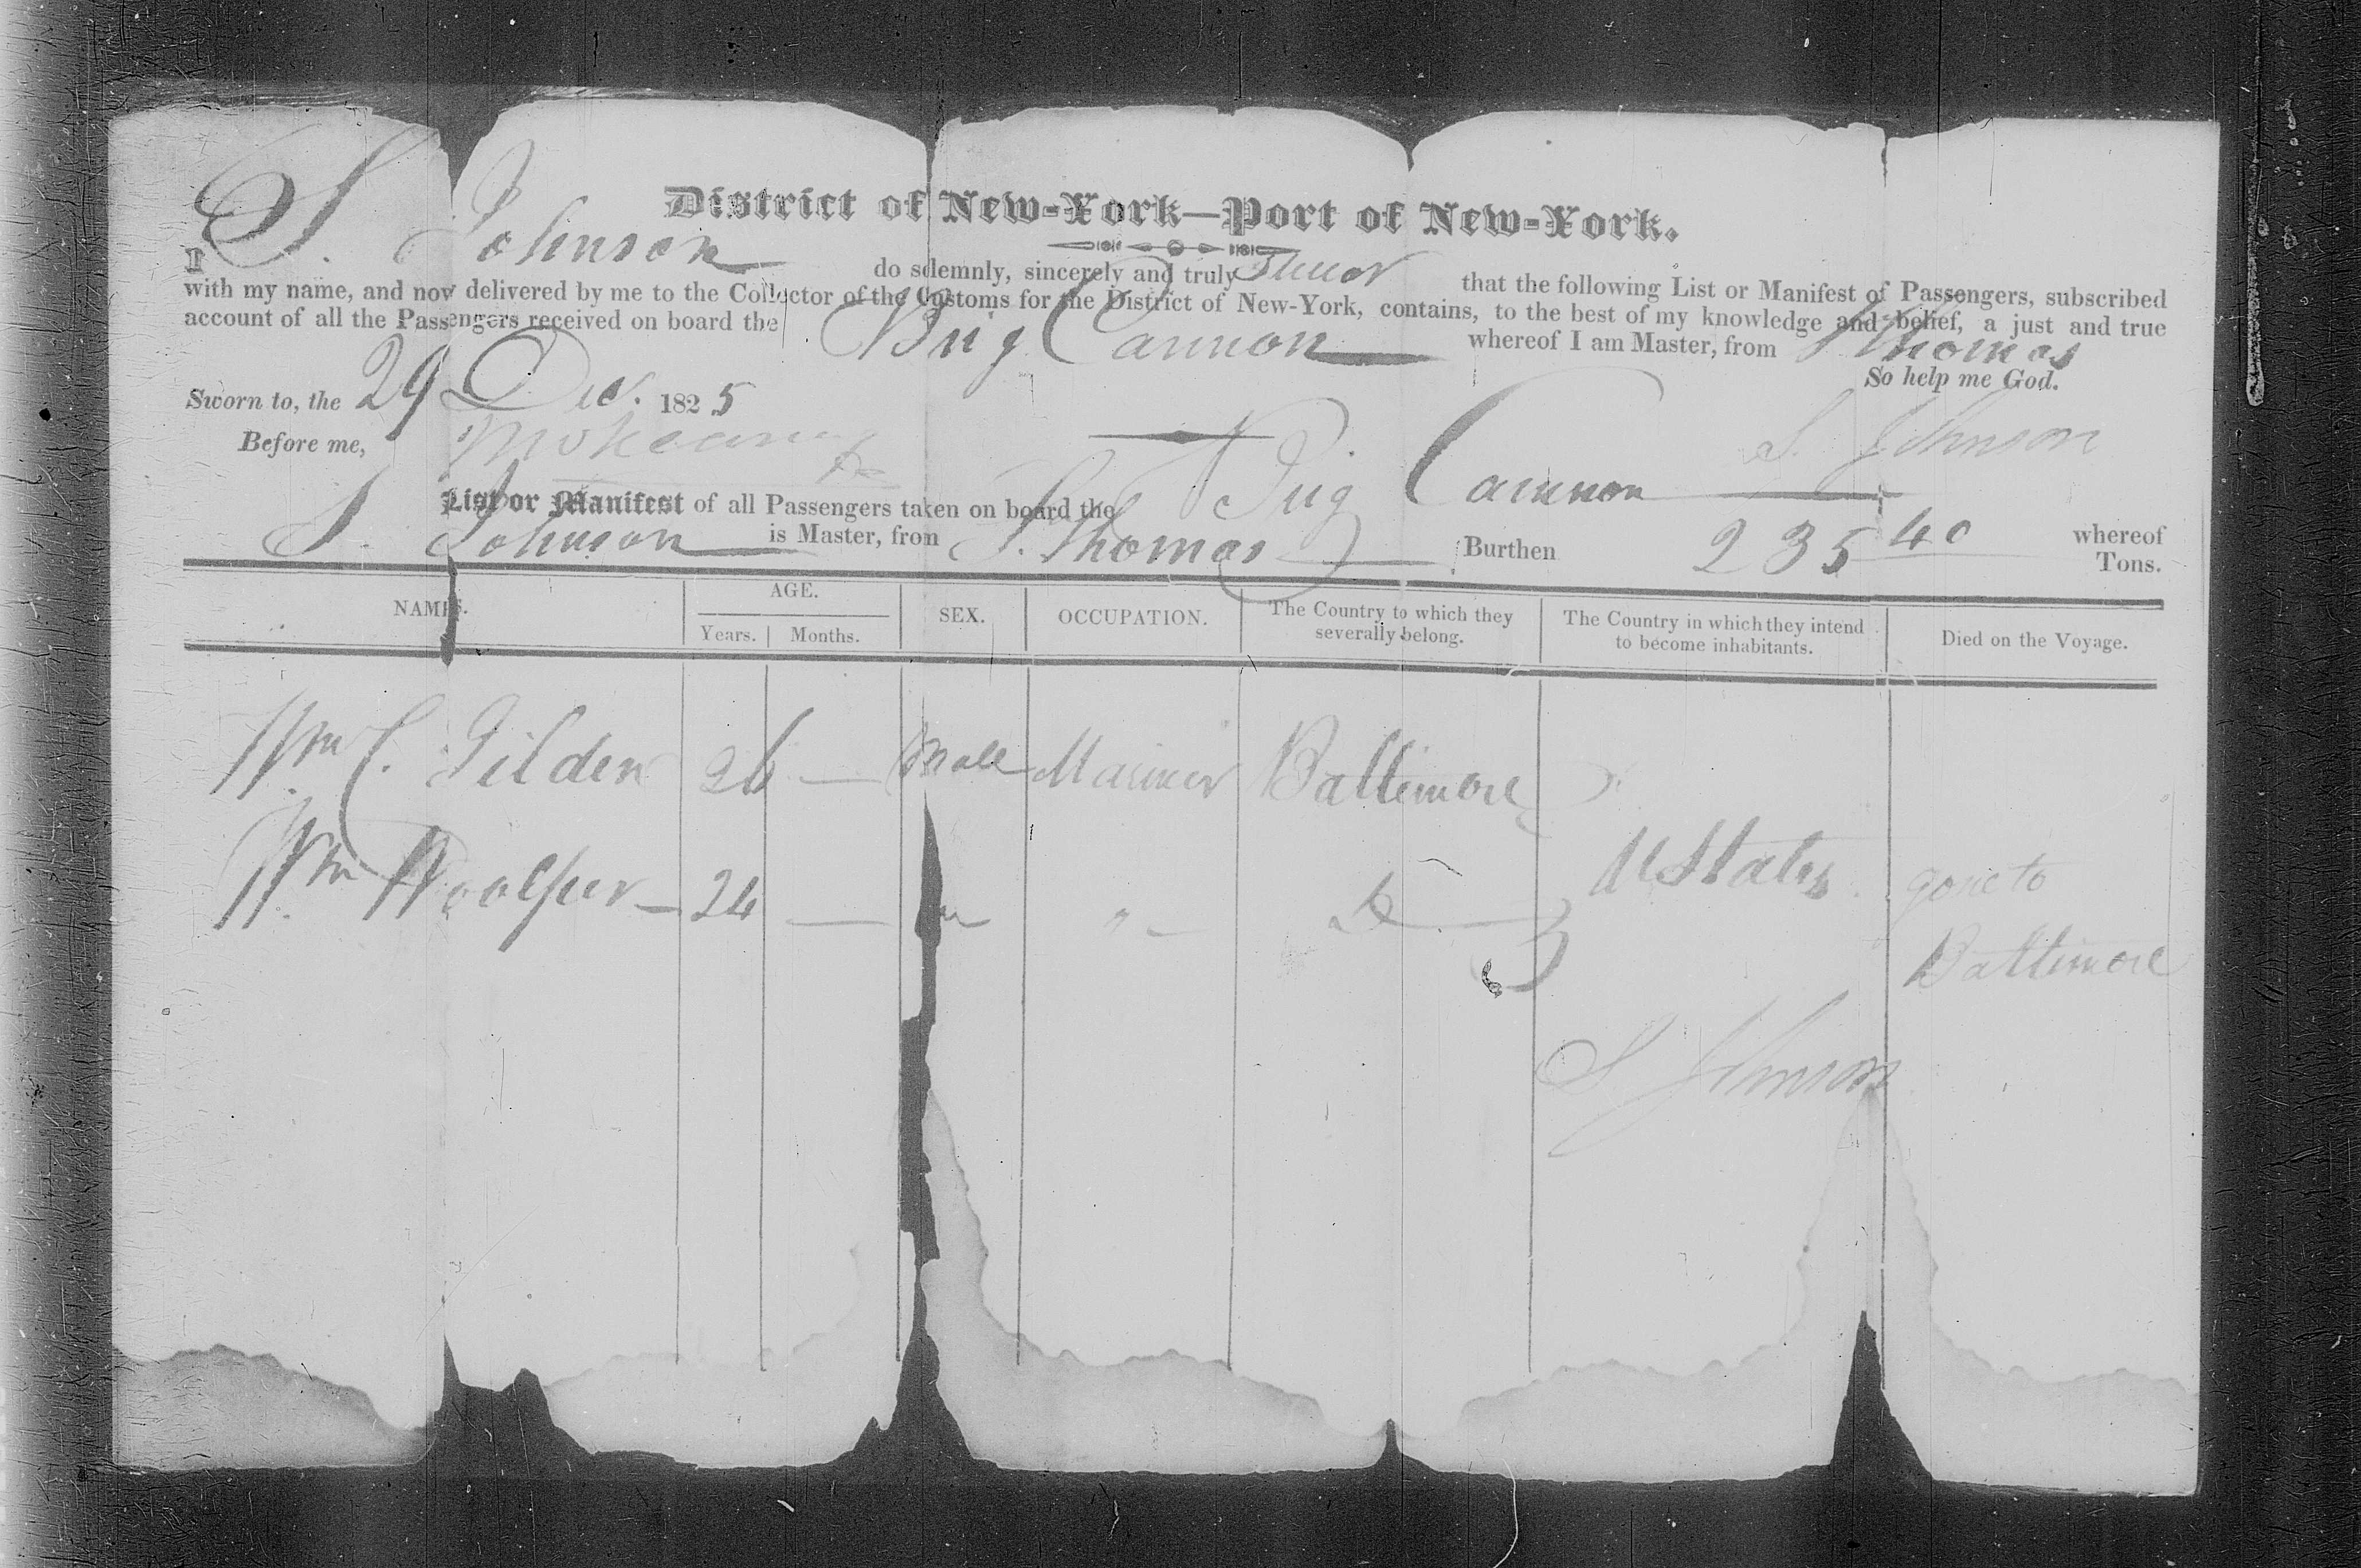 District of New-York—Port of New-York.
I S. Johnson do solemnly, sincerely and truly Swear that the following List or Manifest of Passengers, subscribed
with my name, and now delivered by me to the Collector of the Customs for the District of New-York, contains, to the best of my knowledge and belief, a just and true
account of all the Passengers received on board the Brig Cannon whereof I am Master, from St Thomas
So help me God.
Sworn to, the 29 Dec. 1825
Before me,
S. Johnson
List or Manifest of all Passengers taken on board the Brig Cannon whereof
S. Johnson is Master, from St. Thomas Burthen 235 40 Tons.
NAMES. AGE. SEX. OCCUPATION. The Country to which they severally belong. The Country in which they intend to become inhabitants. Died on the Voyage.
Years. Months.
Wm C. Gilden 26 — Male Mariner Baltimore
Wm 24 — " " Do U States gone to
Baltimore
S Johnson